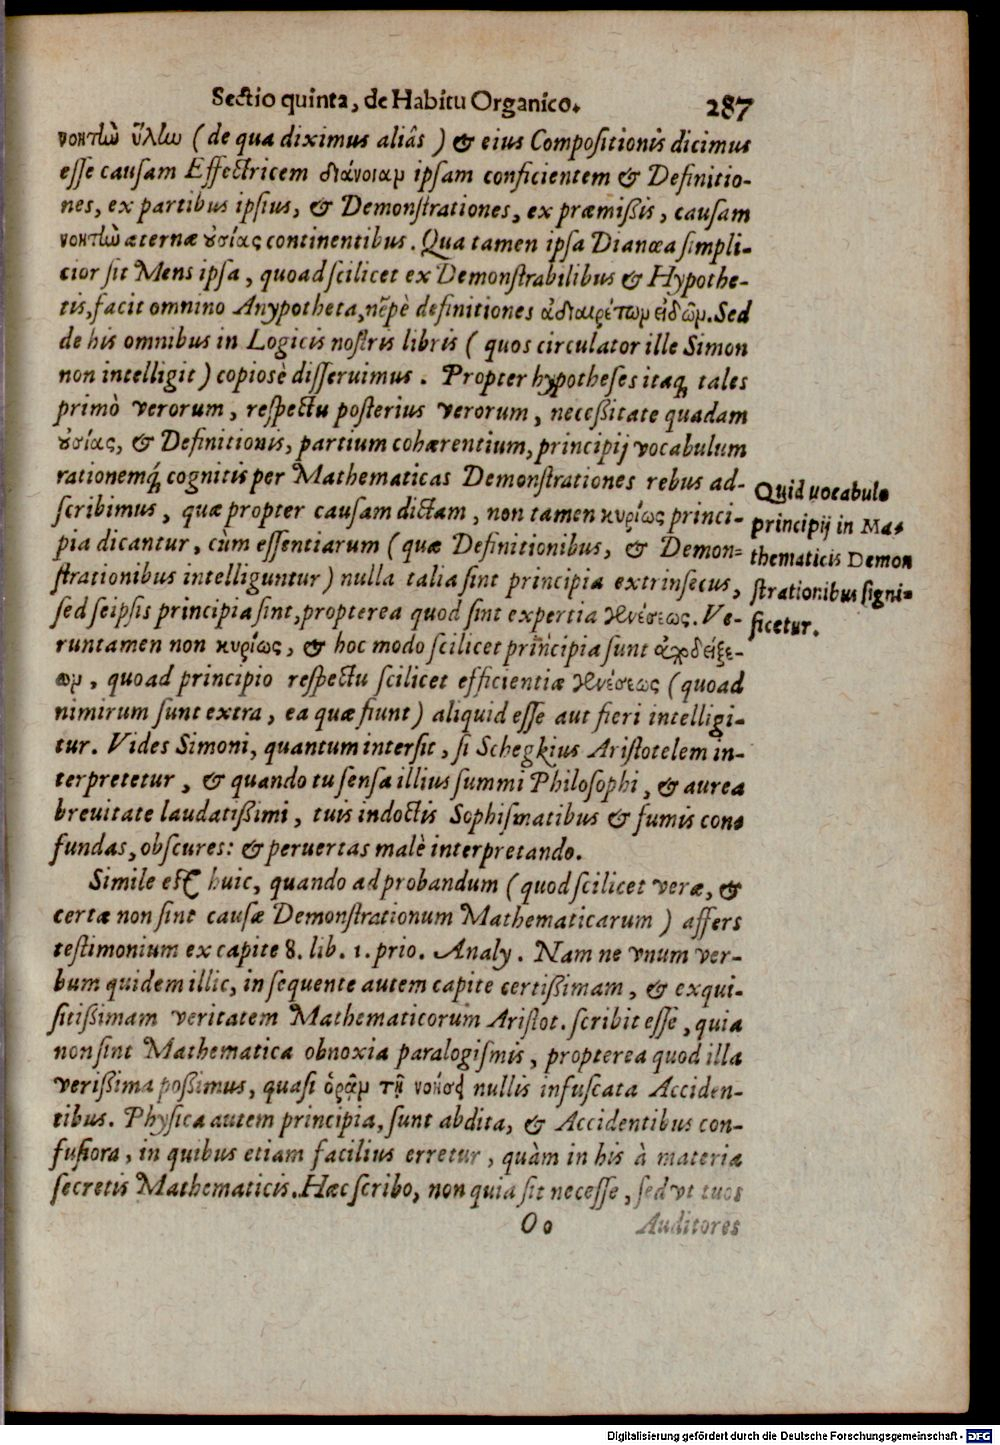 Sectio quinta, de Habitu Organico. 287
νοητὴν ὕλην (de qua diximus aliâs) & eius Compositionis dicimus
esse causam Effectricem διάνοιαν ipsam conficientem & Definitio-
nes, ex partibus ipsius, & Demonstrationes, ex præmißis, causam
νοητὴν æternæ ȣσίας continentibus. Qua tamen ipsa Dianœa simpli-
cior sit Mens ipsa, quoad scilicet ex Demonstrabilibus & Hypothe-
tis, facit omnino Anypotheta, nẽpè definitiones ἀδιαιρέτων εἰδῶν. Sed
de his omnibus in Logicis nostris libris (quos circulator ille Simon
non intelligit) copiosè disseruimus. Propter hypotheses itaq; tales
primò verorum, respectu posterius verorum, neceßitate quadam
ȣσίας, & Definitionis, partium cohærentium, principij vocabulum
rationemq́; cognitis per Mathematicas Demonstrationes rebus ad-
scribimus, quæ propter causam dictam, non tamen κυρίως princi-
pia dicantur, cùm essentiarum (quæ Definitionibus, & Demon=
strationibus intelliguntur) nulla talia sint principia extrinsecus,
sed seipsis principia sint, propterea quod sint expertia γενέσεως. Ve-
runtamen non κυρίως, & hoc modo scilicet principia sunt ἀποδείξε-
ων, quoad principio respectu scilicet efficientiæ γενέσεως (quoad
nimirum sunt extra, ea quæ fiunt) aliquid esse aut fieri intelligi-
tur. Vides Simoni, quantum intersit, si Schegkius Aristotelem in-
terpretetur, & quando tu sensa illius summi Philosophi, & aurea
breuitate laudatißimi, tuis indoctis Sophismatibus & fumis con-
fundas, obscures: & peruertas malè interpretando.
Simile est huic, quando ad probandum (quod scilicet veræ, &
certæ non sint causæ Demonstrationum Mathematicarum) affers
testimonium ex capite 8. lib. 1. prio. Analy. Nam ne vnum ver-
bum quidem illic, in sequente autem capite certißimam, & exqui-
sitißimam veritatem Mathematicorum Aristot. scribit esse, quia
non sint Mathematica obnoxia paralogismis, propterea quod illa
verißima poßimus, quasi ὁρᾶν τῇ νοήσει nullis infuscata Acciden-
tibus. Physica autem principia, sunt abdita, & Accidentibus con-
fusiora, in quibus etiam facilius erretur, quàm in his à materia
secretis Mathematicis. Hæc scribo, non quia sit necesse, sed vt tuos
Oo Auditores
Quid uocabulo
principij in Ma-
thematicis Demon
strationibus signi=
ficetur.
Digitalisierung gefördert durch die Deutsche Forschungsgemeinschaft - DFG